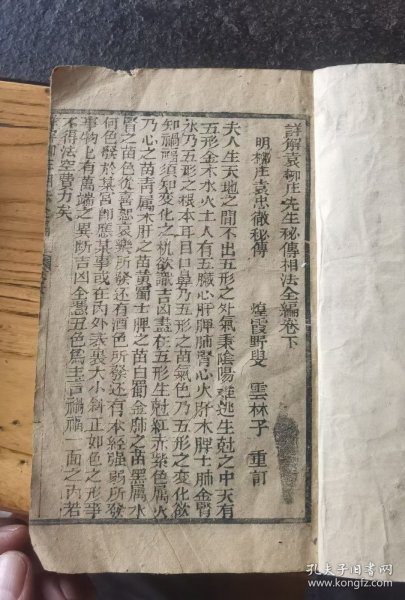 詳解袁柳庄先生秘傳相法全編卷下
明柳庄袁忠徹秘傳 煌霞野叟 雲林子 重訂
夫人生天地之間不出五形之外氣秉陰陽难逃生尅之中天有
五形金木水火土人有五臟心肝脾肺腎心火肝木脾土肺金腎
水乃五形之根本耳目口鼻乃五形之苗氣色乃五形之変化欲
知禍福須知変化之机欲識吉凶盡在五形生尅紅赤紫色属火
乃心之苗青属木肝之苗黃属土脾之苗白属金肺之苗黑属水
腎之苗色從喜怒哀樂所發还有酒色所發还有本經强弱所發
何色發於某宮即應某事或在内外表裏大小斜正如色之形爭
事物上有萬端之異断吉凶全憑五色爲主言禍福一面之内若
不得法空費力矣
孔夫子旧书网
www.kongfz.com